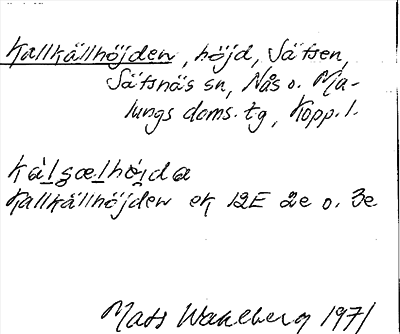 Kallkällhöjden, höjd, Sätsen,
Sätsnäs sn, Nås o. Ma-
lungs doms. tg, Kopp. l.
kàlʂælhö̀jda
Kallkällhöjden ek 12E 2e o. 3e
Mats Wahlberg 1971